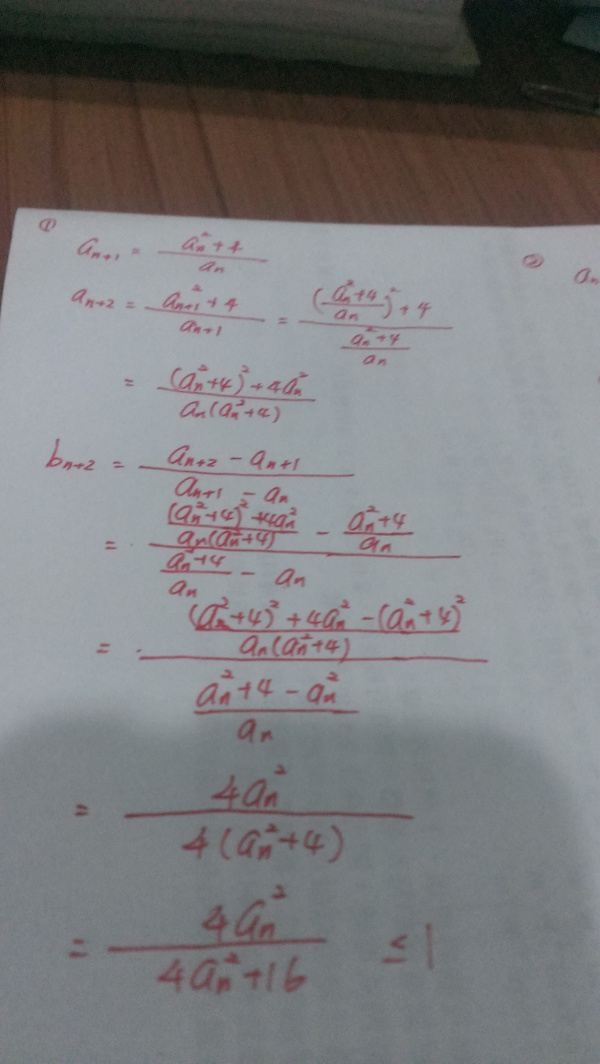 ①
a_{n+1} = \frac{a_n^2+4}{a_n}
② a_n
a_{n+2} = \frac{a_{n+1}^2+4}{a_{n+1}} = \frac{(\frac{a_n^2+4}{a_n})^2+4}{\frac{a_n^2+4}{a_n}}
= \frac{(a_n^2+4)^2+4a_n^2}{a_n(a_n^2+4)}
b_{n+2} = \frac{a_{n+2}-a_{n+1}}{a_{n+1}-a_n}
= \frac{\frac{(a_n^2+4)^2+4a_n^2}{a_n(a_n^2+4)}-\frac{a_n^2+4}{a_n}}{\frac{a_n^2+4}{a_n}-a_n}
= \frac{\frac{(a_n^2+4)^2+4a_n^2-(a_n^2+4)^2}{a_n(a_n^2+4)}}{\frac{a_n^2+4-a_n^2}{a_n}}
= \frac{4a_n^2}{4(a_n^2+4)}
= \frac{4a_n^2}{4a_n^2+16} ≤ 1